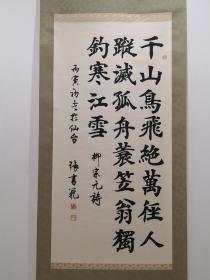 千山鳥飛絶萬徑人
蹤滅孤舟蓑笠翁獨
釣寒江雪
柳宗元詩
丙寅初冬於仙台
張書範